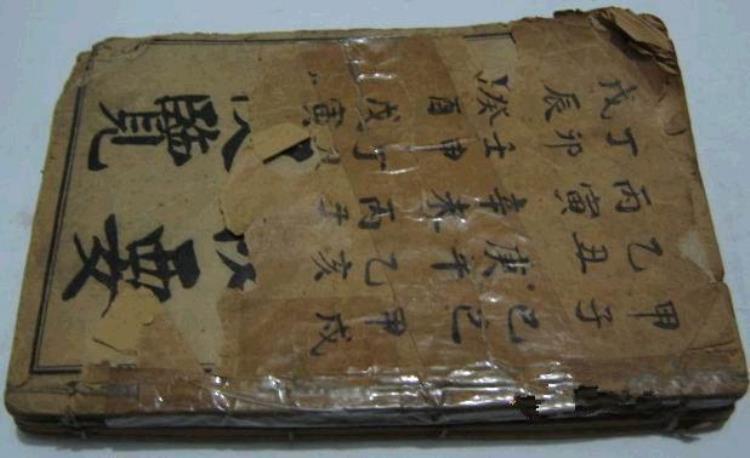 甲子 己巳 甲戌
乙丑 庚午 乙亥
丙寅 辛未 丙子
丁卯 壬申 丁
戊辰 癸酉 戊寅
要
覽